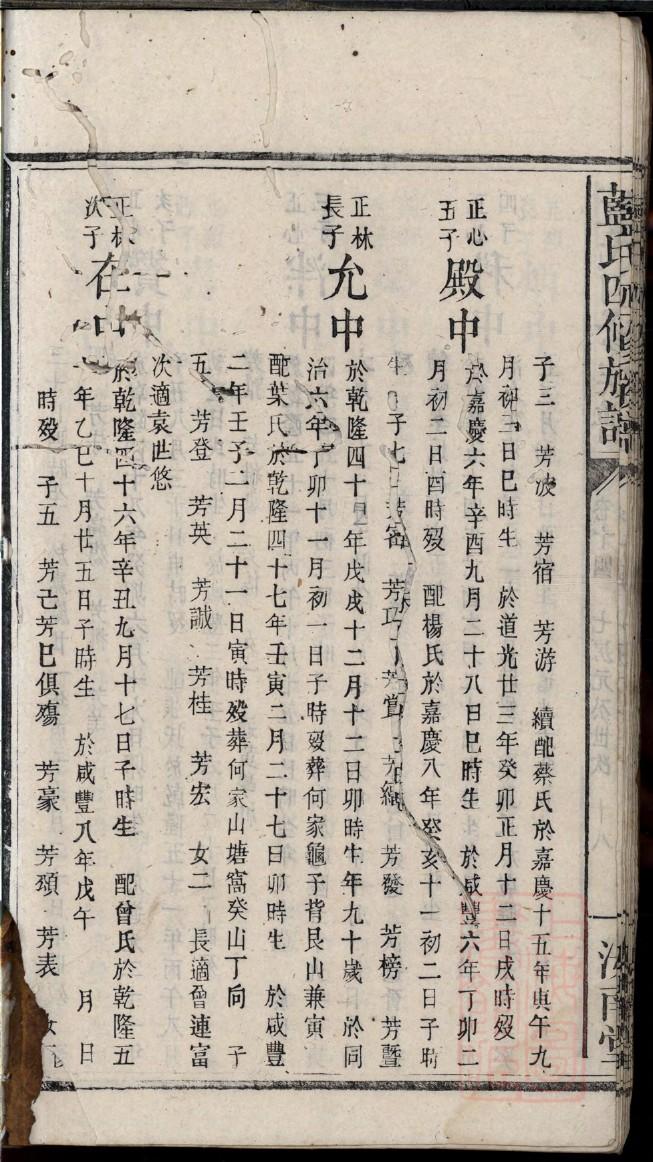 藍氏四修族譜
汝南堂
子三 芳波 芳宿 芳游 續配蔡氏於嘉慶十五年庚午九
月初三日巳時生 於道光廿三年癸卯正月十二日戌時歿
正心五子 殿中 於嘉慶六年辛酉九月二十八日巳時生 於咸豐六年丁卯二
月初二日酉時歿 配楊氏於嘉慶八年癸亥十一初二日子時
生 子七 芳發 芳榜 芳暨
正林長子 允中 於乾隆四十 年戊戌十二月十二日卯時生年九十歲 於同
治六年丁卯十一月初一日子時歿葬何家龜子背艮山兼寅
配葉氏於乾隆四十七年壬寅二月二十七日卯時生 於咸豐
二年壬子二月二十一日寅時歿葬何家山塘窩癸山丁向 子
五 芳登 芳英 芳誠 芳桂 芳宏 女二 長適曾連富
次適袁世悠
正林次子 在中 於乾隆四十六年辛丑九月十七日子時生 配曾氏於乾隆五
年乙巳十月廿五日子時生 於咸豐八年戊午 月 日
時歿 子五 芳己芳巳俱殤 芳豪 芳頌 芳表